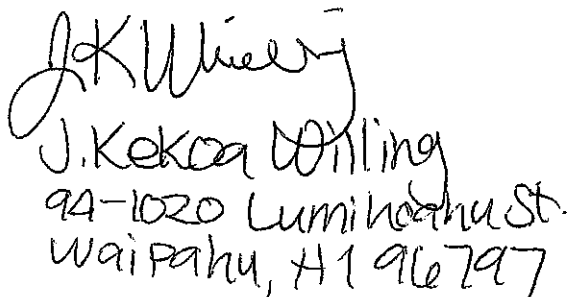 JK Willing
J. Kekoa Willing
94-1020 Lumihoahu St.
Waipahu, HI 96797